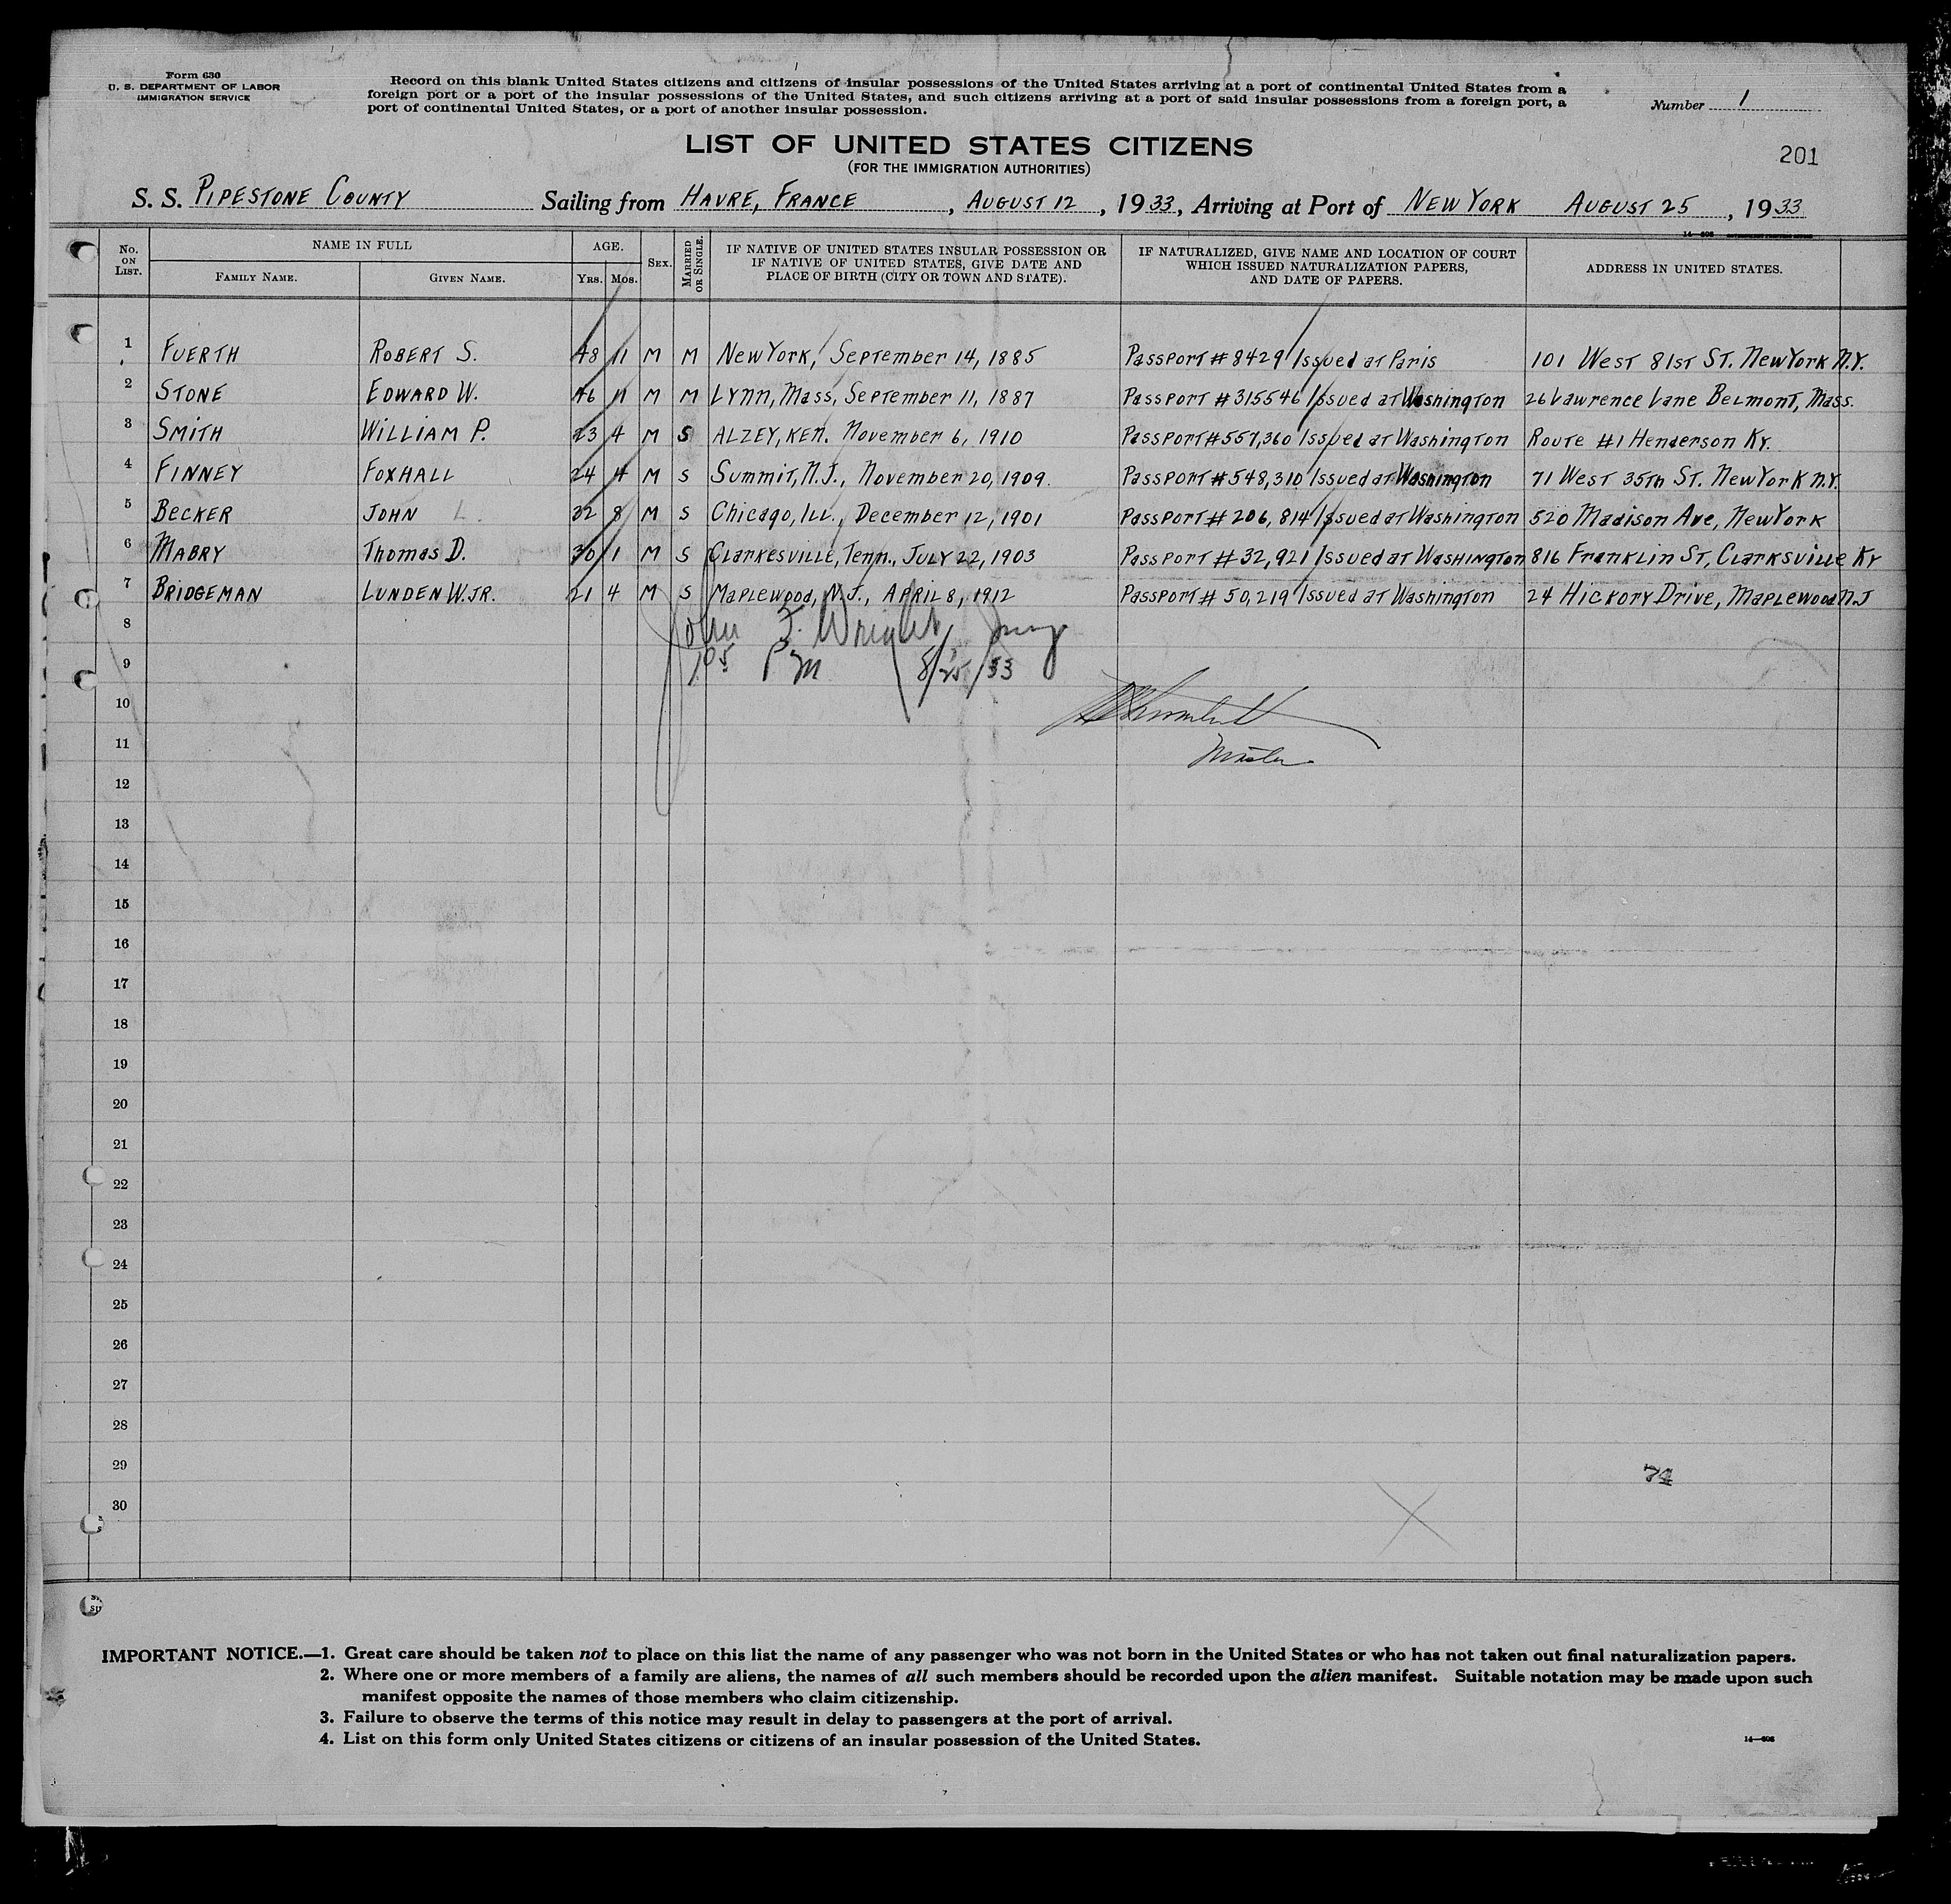 Form 630
U. S. DEPARTMENT OF LABOR
IMMIGRATION SERVICE
Record on this blank United States citizens and citizens of insular possessions of the United States arriving at a port of continental United States from a
foreign port or a port of the insular possessions of the United States, and such citizens arriving at a port of said insular possessions from a foreign port, a
port of continental United States, or a port of another insular possession.
Number 1
LIST OF UNITED STATES CITIZENS
(FOR THE IMMIGRATION AUTHORITIES)
201
S. S. PIPESTONE COUNTY Sailing from HAVRE, FRANCE, AUGUST 12, 1933, Arriving at Port of NEW YORK AUGUST 25, 1933
No. ON LIST. NAME IN FULL FAMILY NAME. GIVEN NAME. AGE. YRS. MOS. SEX. MARRIED OR SINGLE. IF NATIVE OF UNITED STATES INSULAR POSSESSION OR IF NATIVE OF UNITED STATES, GIVE DATE AND PLACE OF BIRTH (CITY OR TOWN AND STATE). IF NATURALIZED, GIVE NAME AND LOCATION OF COURT WHICH ISSUED NATURALIZATION PAPERS, AND DATE OF PAPERS. ADDRESS IN UNITED STATES.
1 FUERTH ROBERT S. 48 11 M M New York, September 14, 1885 Passport #8429 Issued at Paris 101 West 81st St. New York N.Y.
2 STONE EDWARD W. 46 11 M M Lynn, Mass, September 11, 1887 Passport #315546 Issued at Washington 26 Lawrence Lane Belmont, Mass.
3 SMITH WILLIAM P. 23 4 M S ALZEY, KEN. November 6, 1910 Passport #557,360 Issued at Washington Route #1 Henderson Ky.
4 FINNEY FOXHALL 24 4 M S Summit, N.J., November 20, 1909. Passport #548,310 Issued at Washington 71 West 35th St. New York N.Y.
5 BECKER JOHN L. 32 8 M S Chicago, Ill., December 12, 1901 Passport # 206,814 Issued at Washington 520 Madison Ave, New York
6 MABRY Thomas D. 30 1 M S Clarkesville, Tenn., July 22, 1903 Passport #32,921 Issued at Washington 816 Franklin St, Clarksville Ky
7 BRIDGEMAN LUNDEN W. JR. 21 4 M S Maplewood, N.J., April 8, 1912 Passport # 50,219 Issued at Washington 24 Hickory Drive, Maplewood N.J
8 John F. Wright
9 105 PM 8/25/33
10
11 Master
12
13
14
15
16
17
18
19
20
21
22
23
24
25
26
27
28
29 74
30
IMPORTANT NOTICE.—1. Great care should be taken not to place on this list the name of any passenger who was not born in the United States or who has not taken out final naturalization papers.
2. Where one or more members of a family are aliens, the names of all such members should be recorded upon the alien manifest. Suitable notation may be made upon such
manifest opposite the names of those members who claim citizenship.
3. Failure to observe the terms of this notice may result in delay to passengers at the port of arrival.
4. List on this form only United States citizens or citizens of an insular possession of the United States.